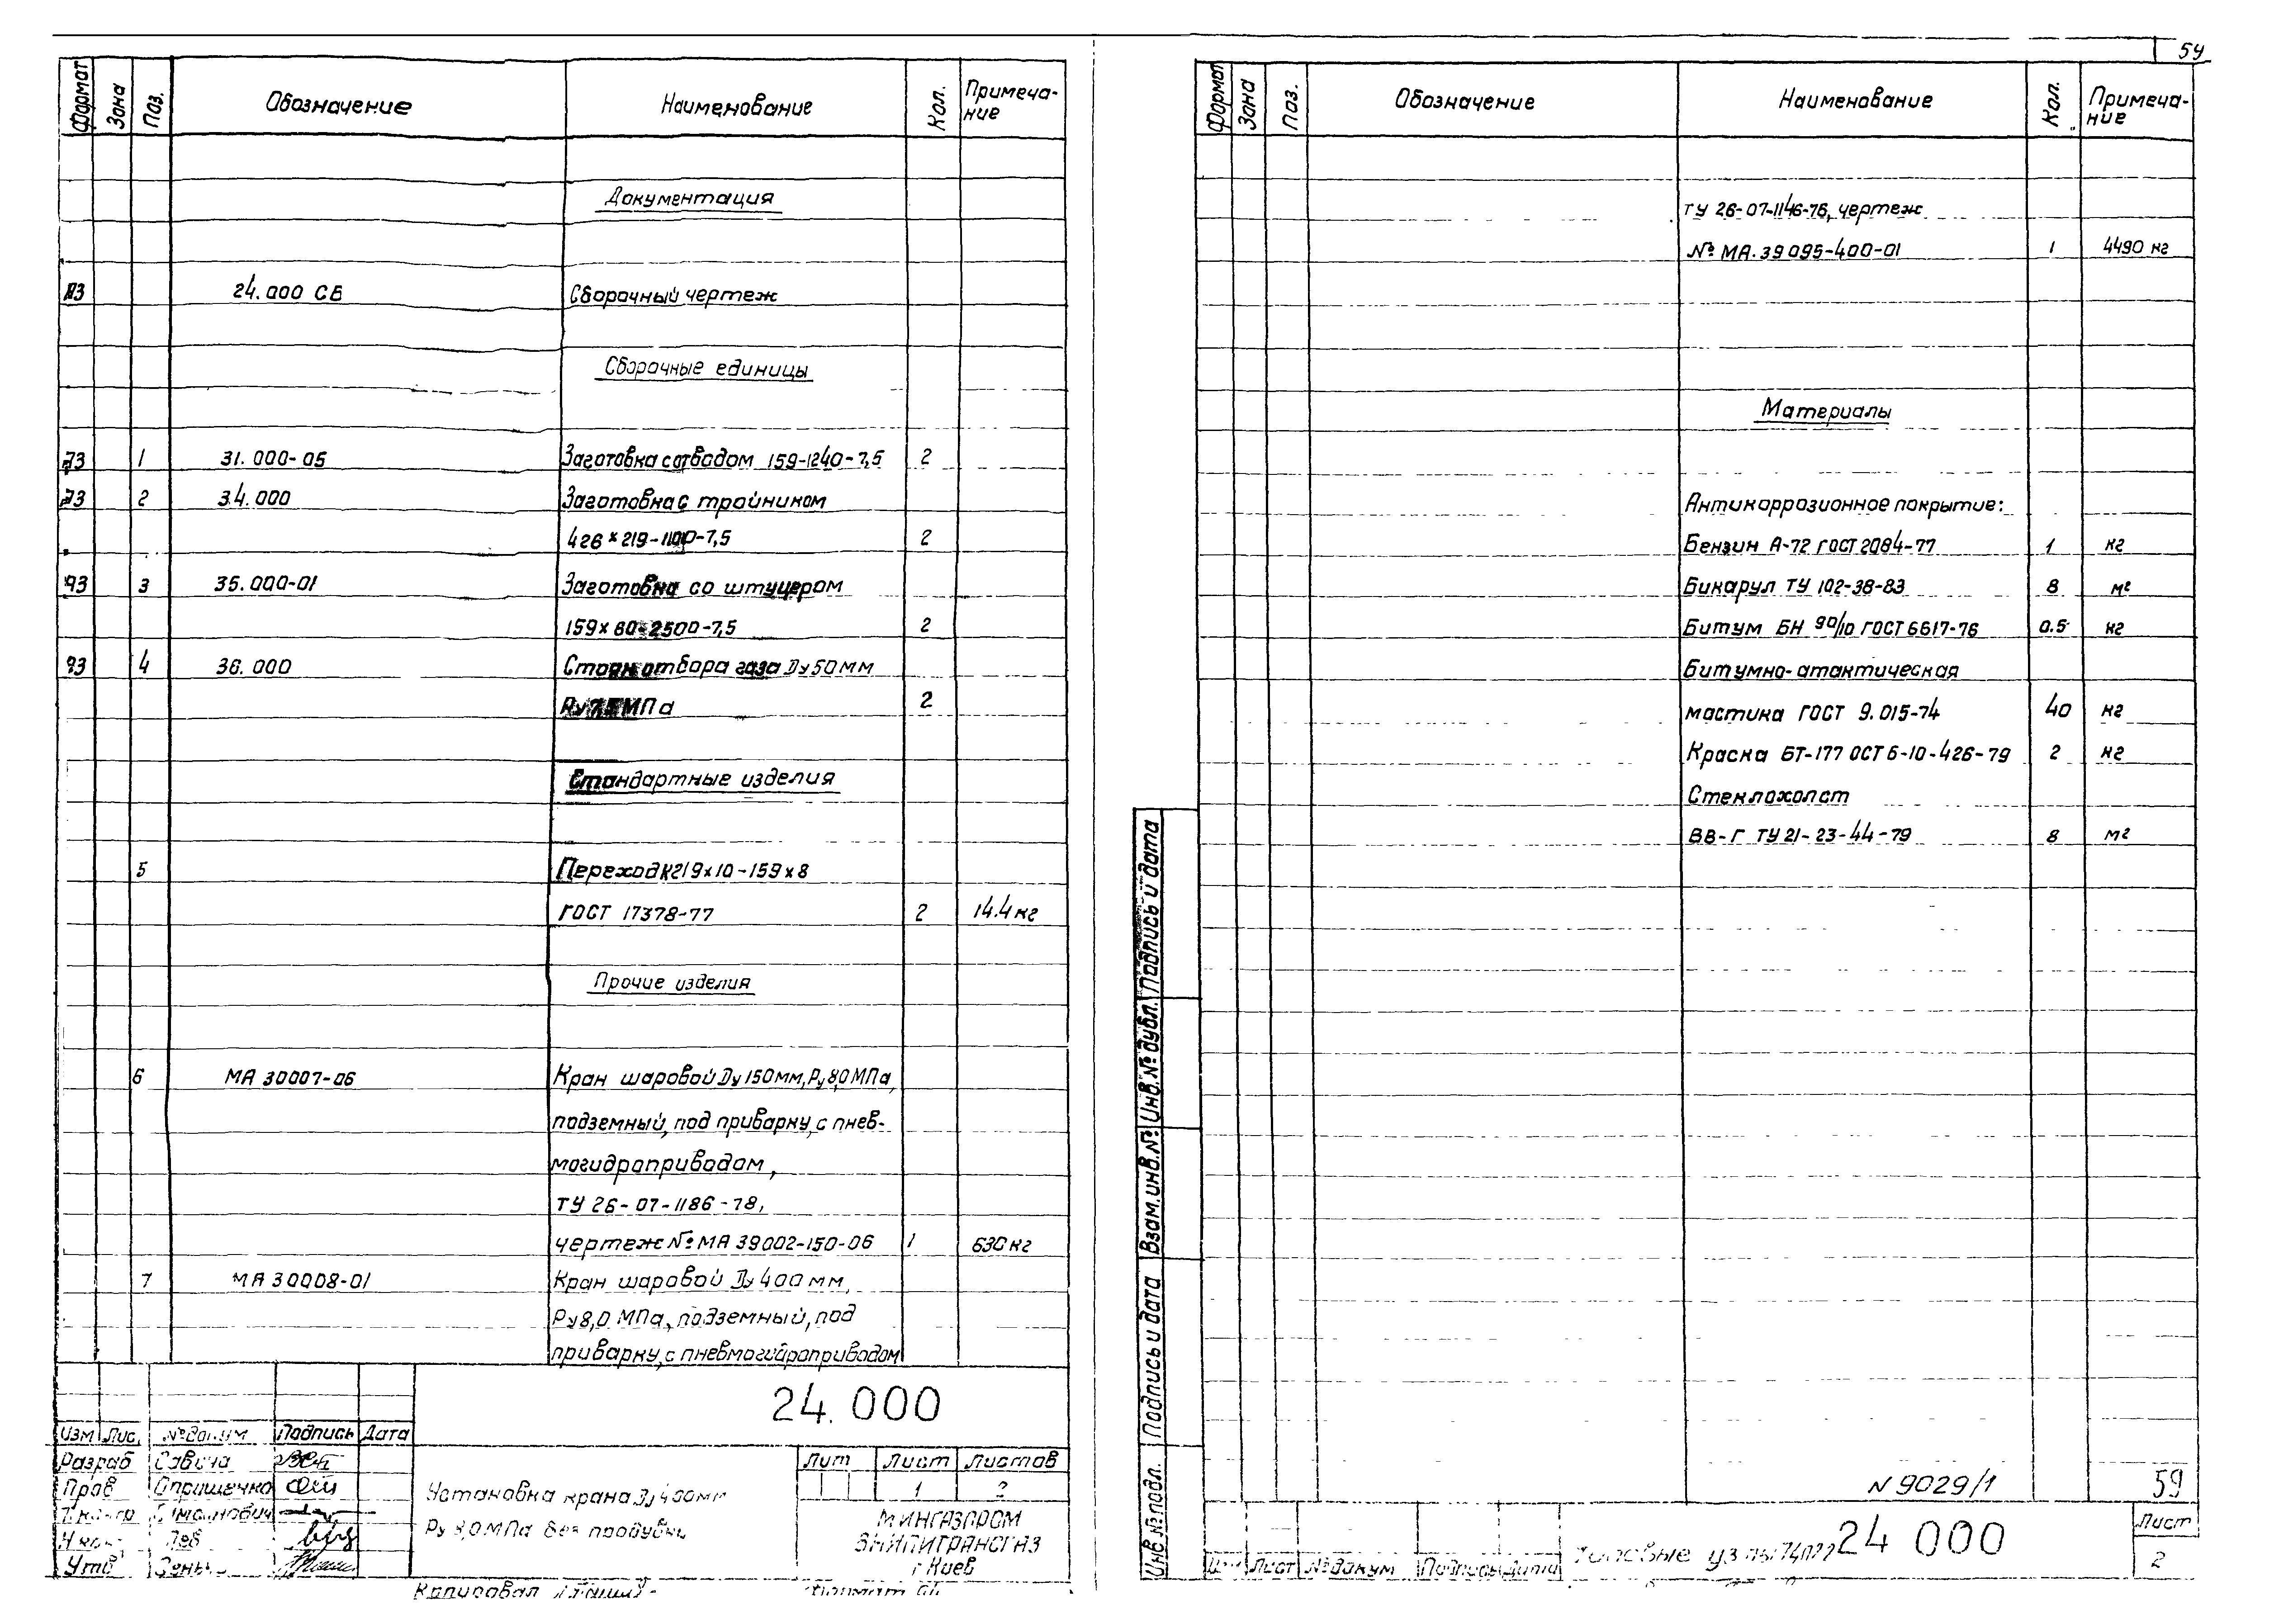 59
Формат Зона Поз. Обозначение Наименование Кол. Примеча-
ние
Документация
А3 24.000 СБ Сборочный чертеж
Сборочные единицы
А3 1 31.000-05 Заготовка с отводом 159-1240-7,5 2
А3 2 34.000 Заготовка с тройником
426×219-1100-7,5 2
А3 3 35.000-01 Заготовка со штуцером
159×60-2500-7,5 2
А3 4 36.000 Стояк отбора газа Ду 50 мм
Ру 7,5 МПа 2
Стандартные изделия
5 Переход К219×10-159×8
ГОСТ 17378-77 2 14.4 кг
Прочие изделия
6 МА 30007-06 Кран шаровой Ду 150 мм, Ру 8,0 МПа,
подземный, под приварку, с пнев-
могидроприводом,
ТУ 26-07-1186-78,
чертеж № МА 39002-150-06 1 630 кг
7 МА 30008-01 Кран шаровой Ду 400 мм,
Ру 8,0 МПа, подземный, под
приварку, с пневмогидроприводом
24.000
Изм Лис. № докум Подпись Дата
Разраб Савича
Пров Оприщенко
Утв
Установка крана Ду 400 мм
Ру 8,0 МПа без продувки
Лит Лист Листов
1 2
МИНГАЗПРОМ
ВНИПИТРАНСГАЗ
г. Киев
Копировал
Формат
Формат Зона Поз. Обозначение Наименование Кол. Примеча-
ние
ТУ 26-07-1146-76, чертеж
№ МА.39095-400-01 1 4490 кг
Материалы
Антикоррозионное покрытие:
Бензин А-72 ГОСТ 2084-77 1 кг
Бикарул ТУ 102-38-83 8 м²
Битум БН 90/10 ГОСТ 6617-76 0.5 кг
Битумно-атактическая
мастика ГОСТ 9.015-74 40 кг
Краска БТ-177 ОСТ 6-10-426-79 2 кг
Стеклохолст
ВВ-Г ТУ 21-23-44-79 8 м²
Инв.№ подл. Подпись и дата Взам.инв.№ Инв.№ дубл. Подпись и дата
N 9029/1 59
Изм Лист № докум Подпись Дата
Типовые узлы
24 000
Лист
2